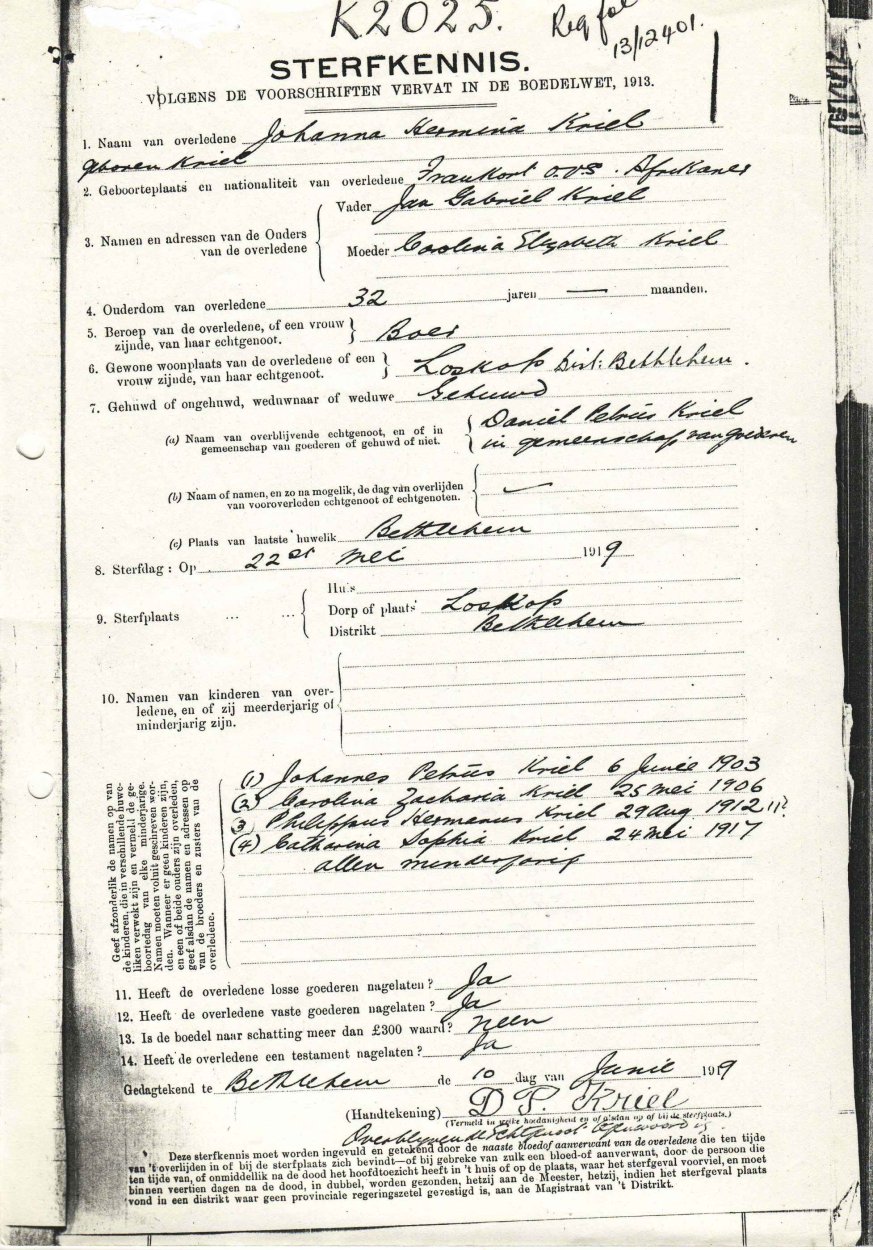 K2025.
Reg fol
13/12401.
STERFKENNIS.
VOLGENS DE VOORSCHRIFTEN VERVAT IN DE BOEDELWET, 1913.
1. Naam van overledene Johanna Hermina Kriel
geboren Kriel
2. Geboorteplaats en nationaliteit van overledene Frankort O.V.S. Afrikaner
3. Namen en adressen van de Ouders van de overledene
Vader Jan Gabriel Kriel
Moeder Carolina Elizabeth Kriel
4. Ouderdom van overledene 32 jaren — maanden.
5. Beroep van de overledene, of een vrouw
zijnde, van haar echtgenoot. Boer
6. Gewone woonplaats van de overledene of een
vrouw zijnde, van haar echtgenoot. Loskop Dist: Bethlehem.
7. Gehuwd of ongehuwd, weduwnaar of weduwe Gehuwd
(a) Naam van overblijvende echtgenoot, en of in
gemeenschap van goederen of gehuwd of niet.
Daniel Petrus Kriel
in gemeenschap van goederen
(b) Naam of namen, en zo na mogelik, de dag van overlijden
van vooroverleden echtgenoot of echtgenoten. —
(c) Plaats van laatste huwelik Bethlehem
8. Sterfdag: Op 22st Mei 1919
9. Sterfplaats ... ...
Huis
Dorp of plaats Loskop
Distrikt Bethlehem
10. Namen van kinderen van over-
ledene, en of zij meerderjarig of
minderjarig zijn.
Geef afzonderlik de namen op van
de kinderen, die in verschillende huwe-
liken verwekt zijn en vermeld de ge-
boortedag van elke minderjarige.
Namen moeten voluit geschreven wor-
den. Wanneer er geen kinderen zijn,
en een of beide ouders zijn overleden,
geef alsdan de namen en adressen op
van de broeders en zusters van de
overledene.
(1) Johannes Petrus Kriel 6 Junie 1903
(2) Carolina Zacharia Kriel 25 Mei 1906
(3) Philippus Hermanus Kriel 29 Aug 1912 11?
(4) Catharina Sophia Kriel 24 Mei 1917
allen minderjarig
11. Heeft de overledene losse goederen nagelaten? Ja
12. Heeft de overledene vaste goederen nagelaten? Ja
13. Is de boedel naar schatting meer dan £300 waard? Neen
14. Heeft de overledene een testament nagelaten? Ja
Gedagtekend te Bethlehem de 10 dag van Junie 1919
(Handtekening) D P. Kriel
(Vermeld in welke hoedanigheid en of alsdan op of bij de sterfplaats.)
Overblijvende Echtgenoot
Deze sterfkennis moet worden ingevuld en getekend door de naaste bloedof aanverwant van de overledene die ten tijde
van 't overlijden in of bij de sterfplaats zich bevindt—of bij gebreke van zulk een bloed-of aanverwant, door de persoon die
ten tijde van, of onmiddellik na de dood het hoofdtoezicht heeft in 't huis of op de plaats, waar het sterfgeval voorviel, en moet
binnen veertien dagen na de dood, in dubbel, worden gezonden, hetzij aan de Meester, hetzij, indien het sterfgeval plaats
vond in een distrikt waar geen provinciale regeringszetel gevestigd is, aan de Magistraat van 't Distrikt.